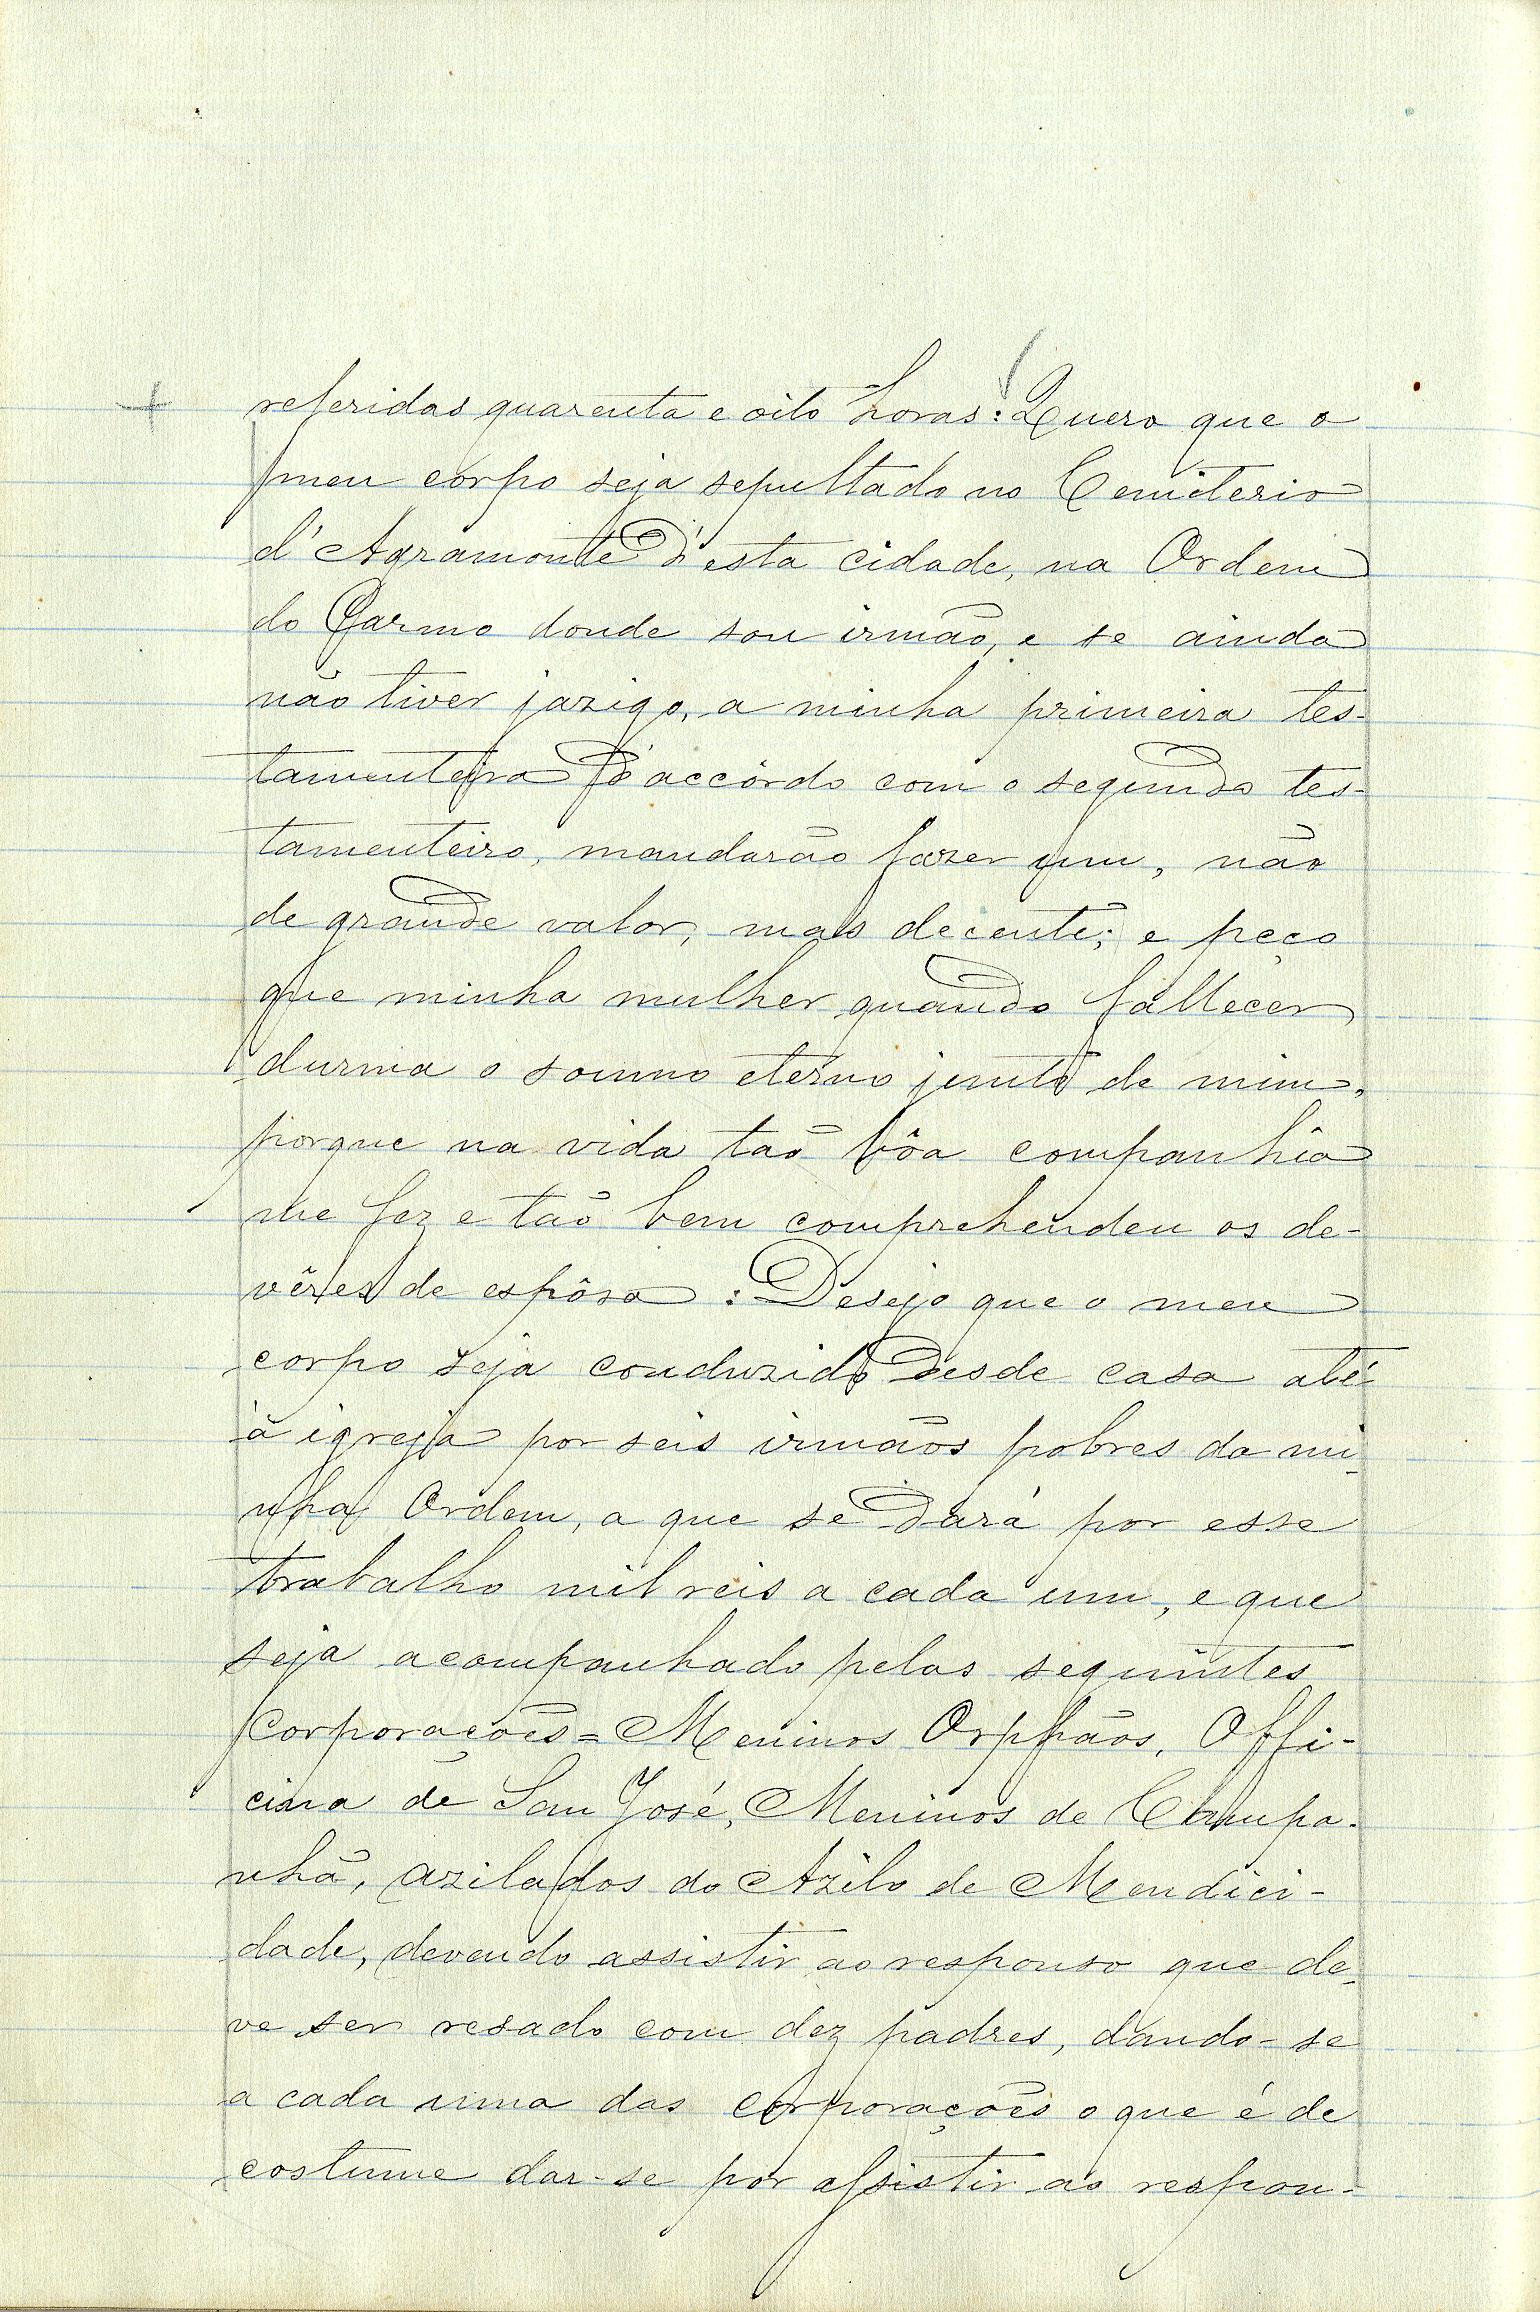 referidas quarenta e oito horas: Quero que o
meu corpo seja sepultado no Cemiterio
d'Agramonte d'esta cidade, na Ordem
do Carmo donde sou irmão, e se ainda
não tiver jazigo, a minha primeira tes-
tamenteira d'accôrdo com o segundo tes-
tamenteiro, mandarão fazer um, não
de grande valor, mas decente; e peço
que minha mulher quando fallecer
durma o somno eterno junto de mim,
porque na vida tão bôa companhia
me fez e tão bem comprehendeu os de-
vêres de espôsa: Desejo que o meu
corpo seja conduzido desde casa até
à igreja por seis irmãos pobres da mi-
nha Ordem, a que se dará por esse
trabalho mil reis a cada um, e que
seja acompanhado pelas seguintes
Corporações = Meninos Orphãos, Offi-
cina de San José, Meninos de Campa-
nhã, azilados do Azilo de Mendici-
dade, devendo assistir ao responso que de-
ve ser resado com dez padres, dando-se
a cada uma das corporações o que é de
costume dar-se por assistir ao respon-